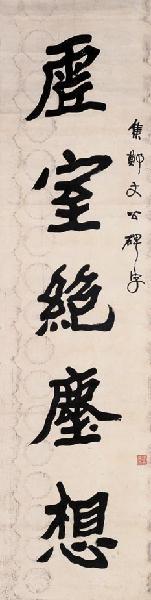 虛室絕塵想
集鄭文公碑字